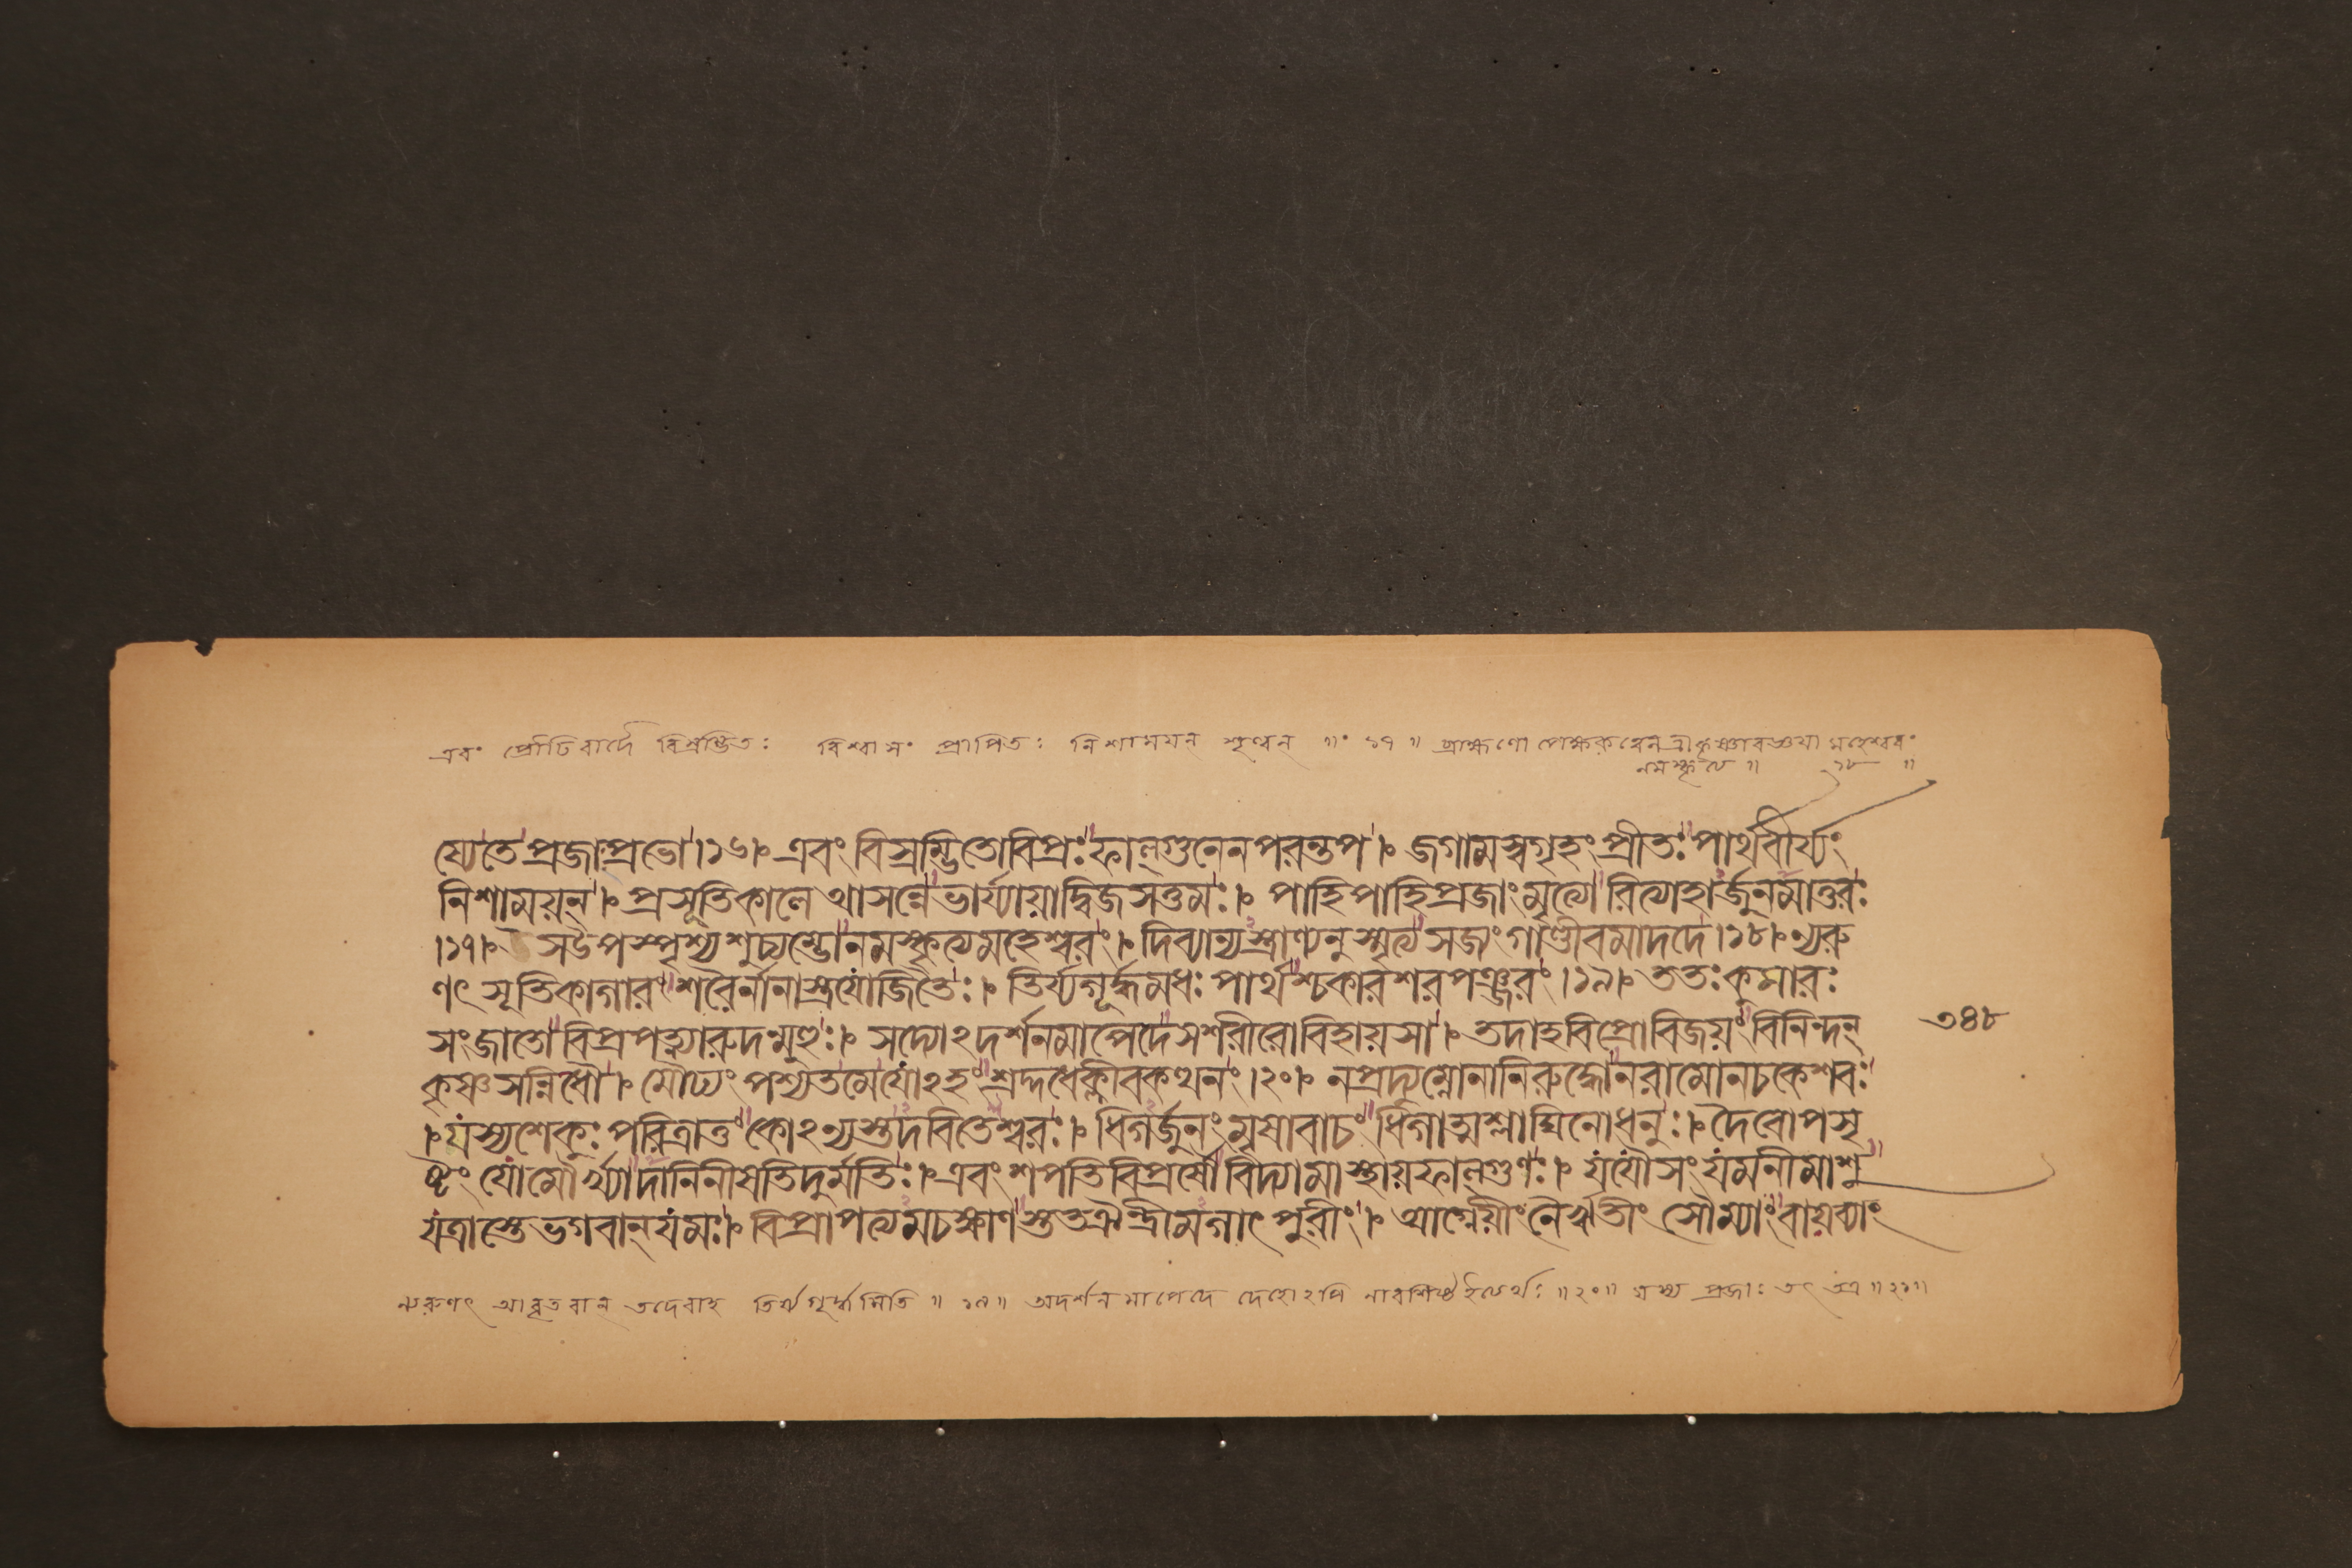 এবং প্রৌঢিবাদৈ বিশ্রম্ভিতঃ বিশ্বাসং প্রাপিতঃ নিশাময়ন শৃণ্বন ॥ ১৭ ॥ ব্রাহ্মণো মহেশ্বরং
নমস্কৃত্য ॥ ১৮ ॥
য্যেতে প্রজাংপ্রভো।১৬। এবং বিস্রম্ভিতোবিপ্রঃফাল্গুনেনপরন্তপ। জগামস্বগৃহং প্রীতঃ পার্থবীর্য্যং
নিশাময়ন্। প্রসূতিকালে আসন্নে ভার্য্যায়াদ্বিজসত্তমঃ। পাহিপাহিপ্রজাংমৃত্যো রিত্যাহার্জুনমাতুরঃ
।১৭। সউপস্পৃশ্য শুচ্যম্ভোনমস্কৃত্যমহেশ্বরং। দিব্যান্যস্ত্রাণ্যনুস্মৃত্য সজ্যং গাণ্ডীবমাদদে।১৮।ন্যরু
ণৎ সূতিকাগারং শরৈর্নানাস্ত্রযোজিতৈঃ। তির্য্যগূর্দ্ধমধঃ পার্থশ্চকারশরপঞ্জরং।১৯। ততঃকুমারঃ
সংজাতো বিপ্রপত্ন্যারুদন্মুহুঃ। সদ্যোঽদর্শনমাপেদে সশরীরোবিহায়সা। তদাহবিপ্রোবিজয়ং বিনিন্দন্
৩৪৮
কৃষ্ণসন্নিধৌ। মৌঢ্যং পশ্যতমেযোঽহং শ্রদ্দধেক্লীবকত্থনং।২০। নপ্রদ্যুম্নোনানিরুদ্ধোনরামোনচকেশবঃ
।যস্যশেকুঃ পরিত্রাতুং কোঽন্যস্তদবিতেশ্বরঃ। ধিগর্জুনং মৃষাবাচং ধিগাত্মশ্লাঘিনোধনুঃ। দৈবোপসৃ
ষ্টং যোমৌর্খ্যাদানিনীষতিদুর্মতিঃ।এবং শপতিবিপ্রর্ষৌ বিদ্যামাস্থায়ফাল্গুণঃ। যযৌসংযমনীমাশু
যত্রাস্তে ভগবান্ যমঃ। বিপ্রাপত্যমচক্ষাণস্ততঐন্দ্রীমগাৎ পুরীং। আগ্নেয়ীং নৈর্ঋতীং সৌম্যাং বায়ব্যাং
ন্যরুণৎ আবৃতবান্ তদেবাহ তির্য্যগূর্দ্ধমিতি ॥ ১৯ ॥ অদর্শনমাপেদে দেহোঽপি নাবশিষ্টইত্যর্থঃ ॥ ২০ ॥ যস্য প্রজাঃ তৎ তত্র ॥ ২১ ॥